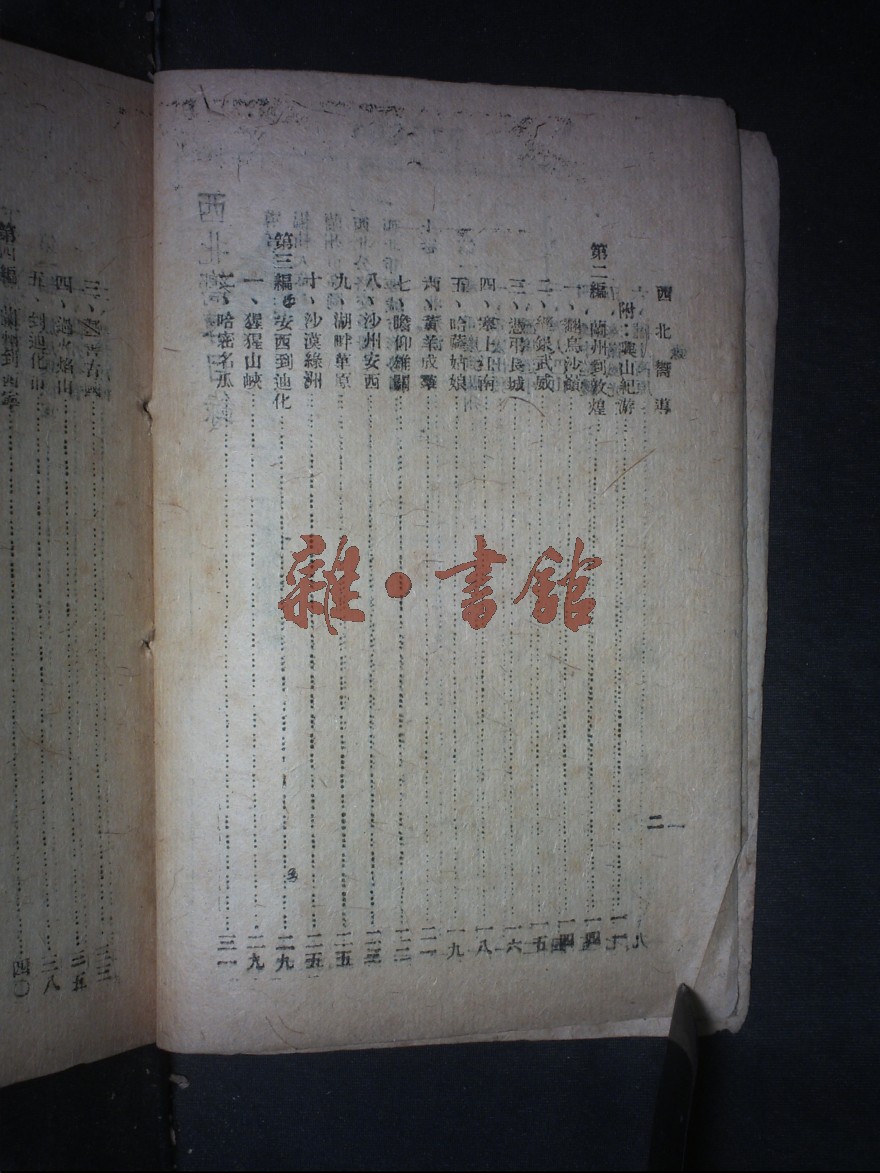 西北嚮導
二
附：興山紀游
第二編 蘭州到敦煌……一四
一、烏沙嶺……一四
二、銀武威……一五
三、憑弔長城……一六
四、塞上江南……一八
五、哈薩姑娘……一九
六、黃羊成羣……二一
七、瞻仰雄關……二二
八、沙州安西……二三
九、湖畔草原……二五
十、沙漠綠洲……二五
第三編 安西到迪化……二九
一、猩猩山峽……二九
二、哈密名瓜……三一
三、……三三
四、過火焰山……三五
五、到迪化市……三八
第四編 蘭州到西寧……四〇
雜·書館